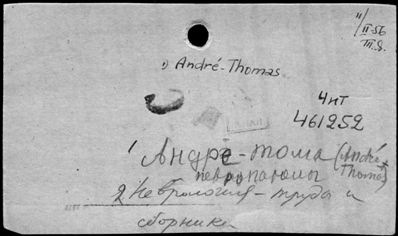 11/II-56
III.8.
1) André-Thomas
Чит
461252
1 Андре-Тома (André-Thomas)
невропатолог
2 Неврология - труды и
сборники